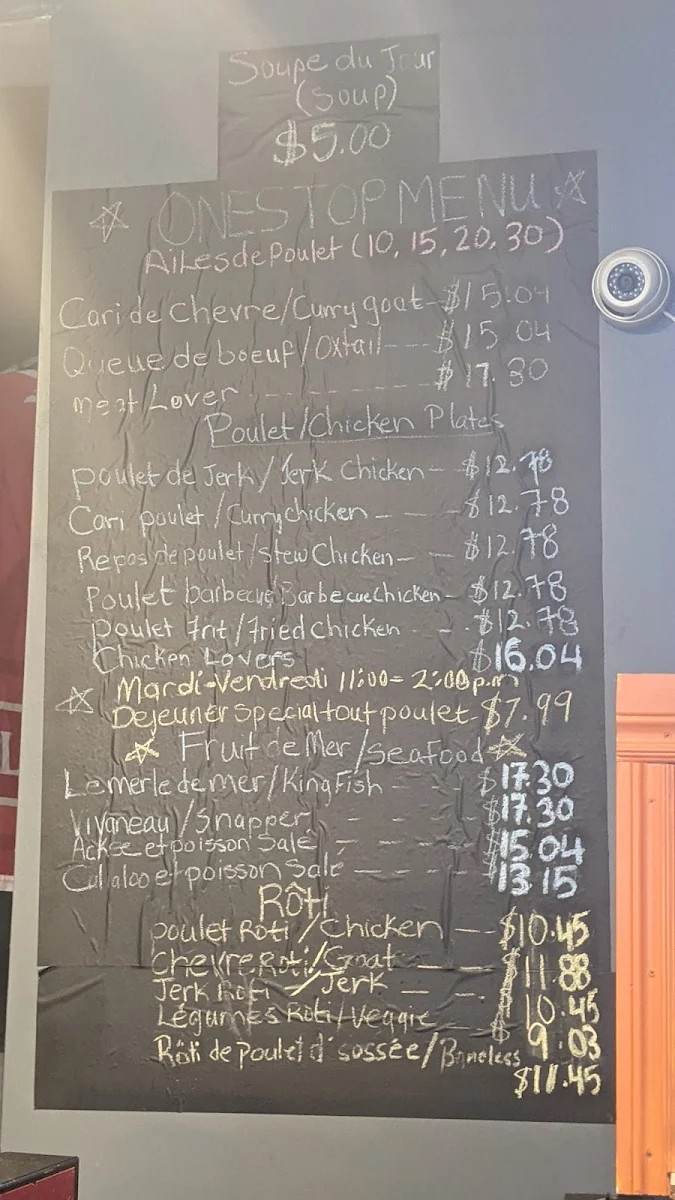 Soupe du Jour
(Soup)
$5.00
ONESTOP MENU
Ailes de Poulet (10, 15, 20, 30)
Cari de chevre/Curry goat-$15.04
Queue de boeuf/Oxtail---$15.04
meat Lover - - - - - - $17.30
Poulet/Chicken Plates
poulet de Jerk/Jerk Chicken- $12.78
Cari poulet/Curry chicken - - - $12.78
Repas de poulet/Stew Chicken- - $12.78
Poulet barbecue/Barbecue chicken- $12.78
poulet frit/fried chicken - - $12.78
Chicken Lovers $16.04
Mardi-Vendredi 11:00= 2:00p.m
Dejeuner special tout poulet-$7.99
Fruit de Mer/seafood
Le merle de mer/King Fish - - $17.30
Vivaneau/Snapper - - - $17.30
Ackee et poisson Salé - - - - $15.04
Callaloo et poisson Salé - - - $13.15
Rôti
poulet Roti/Chicken -- $10.45
Chevre Roti/Goat - - $11.88
Jerk Roti - Jerk - - $10.45
Légumes Roti/Veggie - $9.03
Rôti de poulet d'sossée/Boneless
$11.45